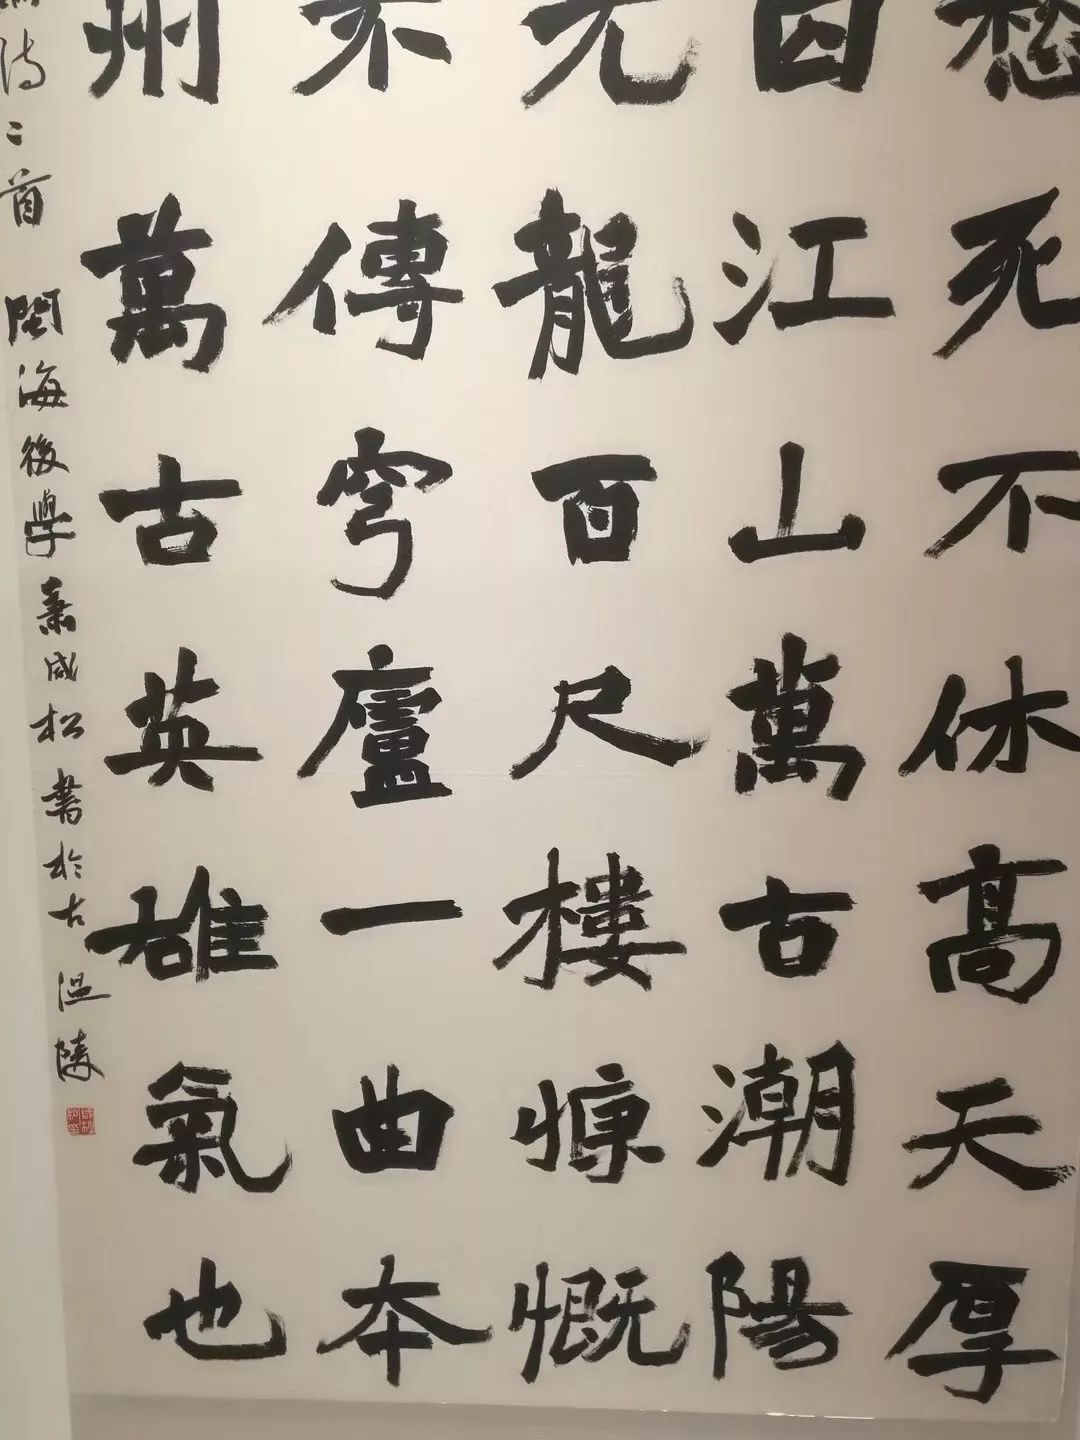 愁死不休高天厚
囚江山萬古潮陽
元龍百尺樓慷慨
不傳穹廬一曲本
州萬古英雄氣也
詩二首 閩海後學蕭成松書於古溫陵